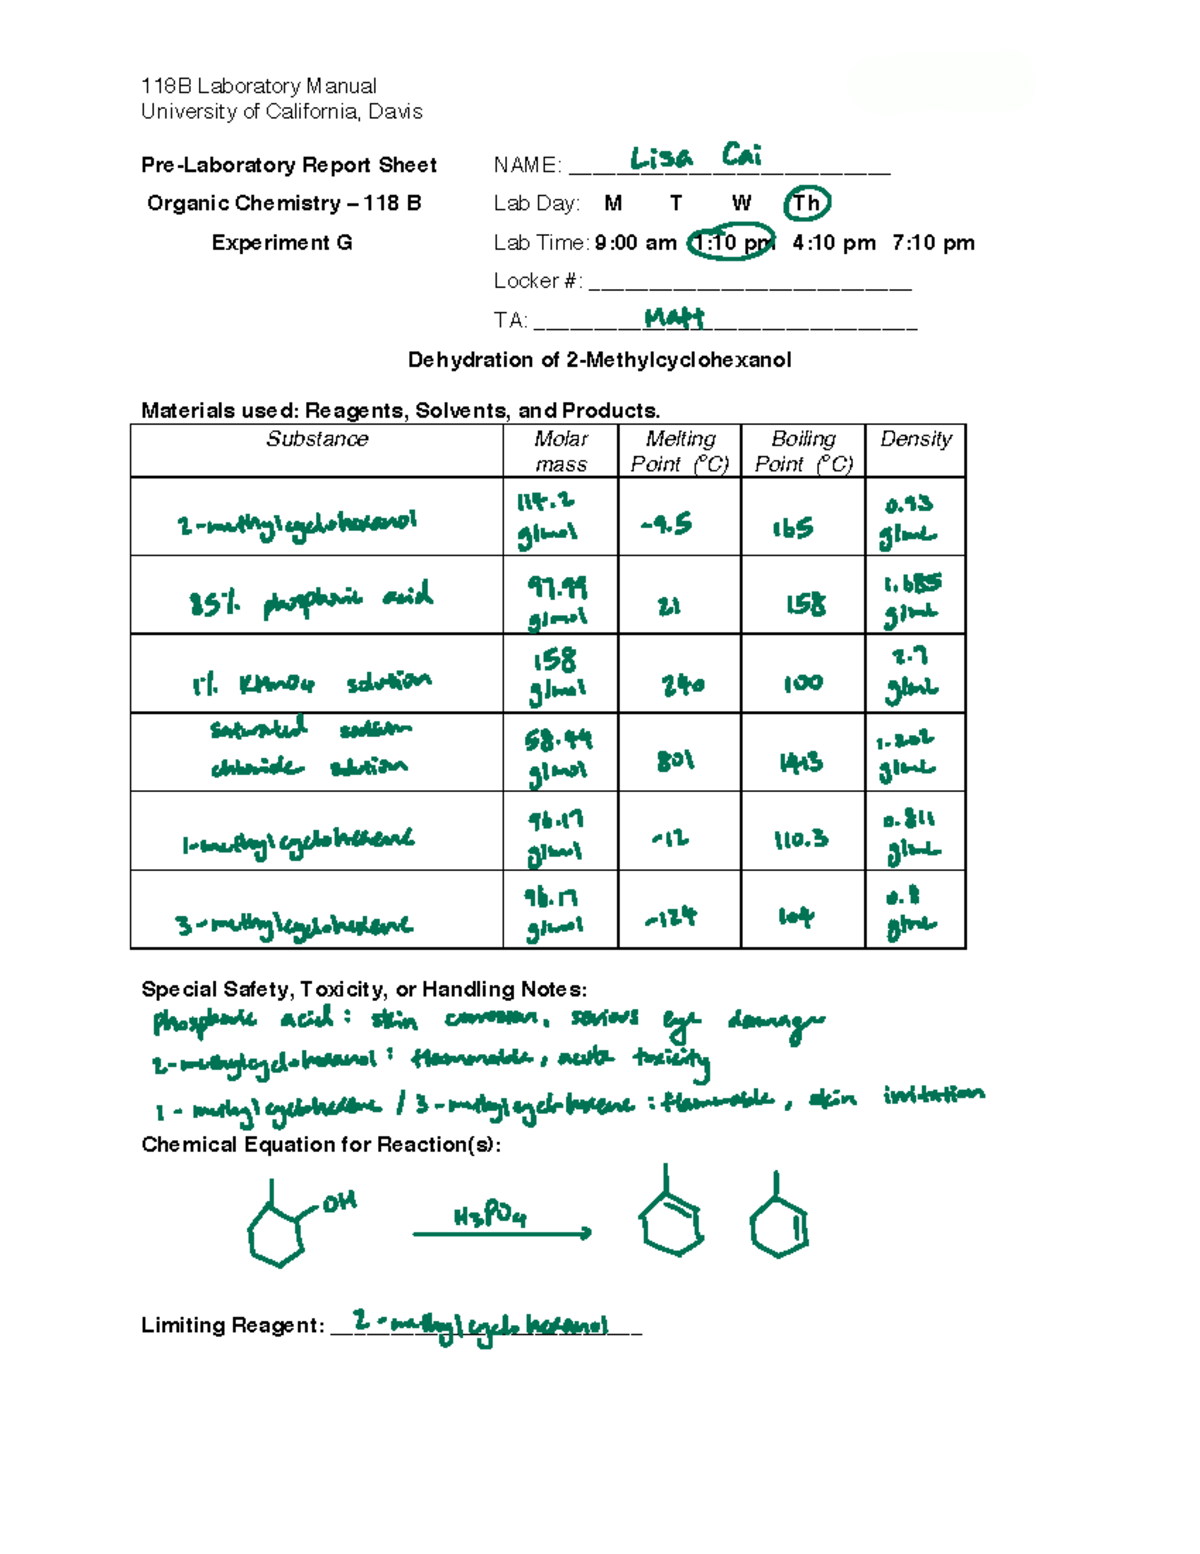 118B Laboratory Manual
University of California, Davis
Pre-Laboratory Report Sheet NAME: Lisa Cai
Organic Chemistry – 118 B Lab Day: M T W Th
Experiment G Lab Time: 9:00 am 1:10 pm 4:10 pm 7:10 pm
Locker #:
TA: Matt
Dehydration of 2-Methylcyclohexanol
Materials used: Reagents, Solvents, and Products.
Substance Molar mass Melting Point (°C) Boiling Point (°C) Density
2-methylcyclohexanol 114.2 g/mol -9.5 165 0.93 g/mL
85% phosphoric acid 97.99 g/mol 21 158 1.685 g/mL
1% KMnO4 solution 158 g/mol 240 100 2.7 g/mL
saturated sodium chloride solution 58.44 g/mol 801 1413 1.202 g/mL
1-methylcyclohexene 96.17 g/mol -12 110.3 0.811 g/mL
3-methylcyclohexene 96.17 g/mol -124 104 0.8 g/mL
Special Safety, Toxicity, or Handling Notes:
phosphoric acid: skin corrosion, serious eye damage
2-methylcyclohexanol: flammable, acute toxicity
1-methylcyclohexene / 3-methylcyclohexene: flammable, skin irritation
Chemical Equation for Reaction(s):
OH H3PO4
Limiting Reagent: 2-methylcyclohexanol